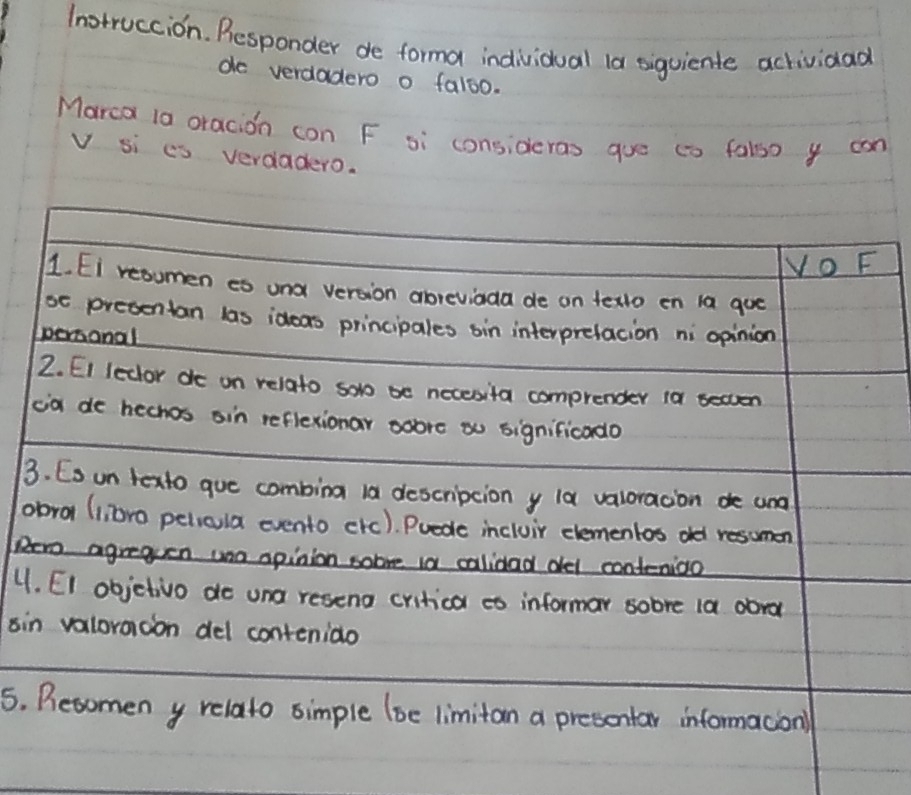 Instrucción. Responder de forma individual la siguiente actividad
de verdadero o falso.
Marca la oración con F si consideras que es falso y con
V si es verdadero.
V O F
1. El resumen es una version abreviada de un texto en la que
se presentan las ideas principales sin interpretacion ni opinion
personal
2. El lector de un relato solo se necesita comprender la secuen
cia de hechos sin reflexionar sobre su significado
3. Es un texto que combina la descripcion y la valoracion de una
obra (libro pelicula evento etc). Puede incluir elementos del resumen
Pero agreguen una apinion sobre la calidad del contenido
4. El objetivo de una resena critica es informar sobre la obra
sin valoracion del contenido
5. Resumen y relato simple (se limitan a presentar informacion)